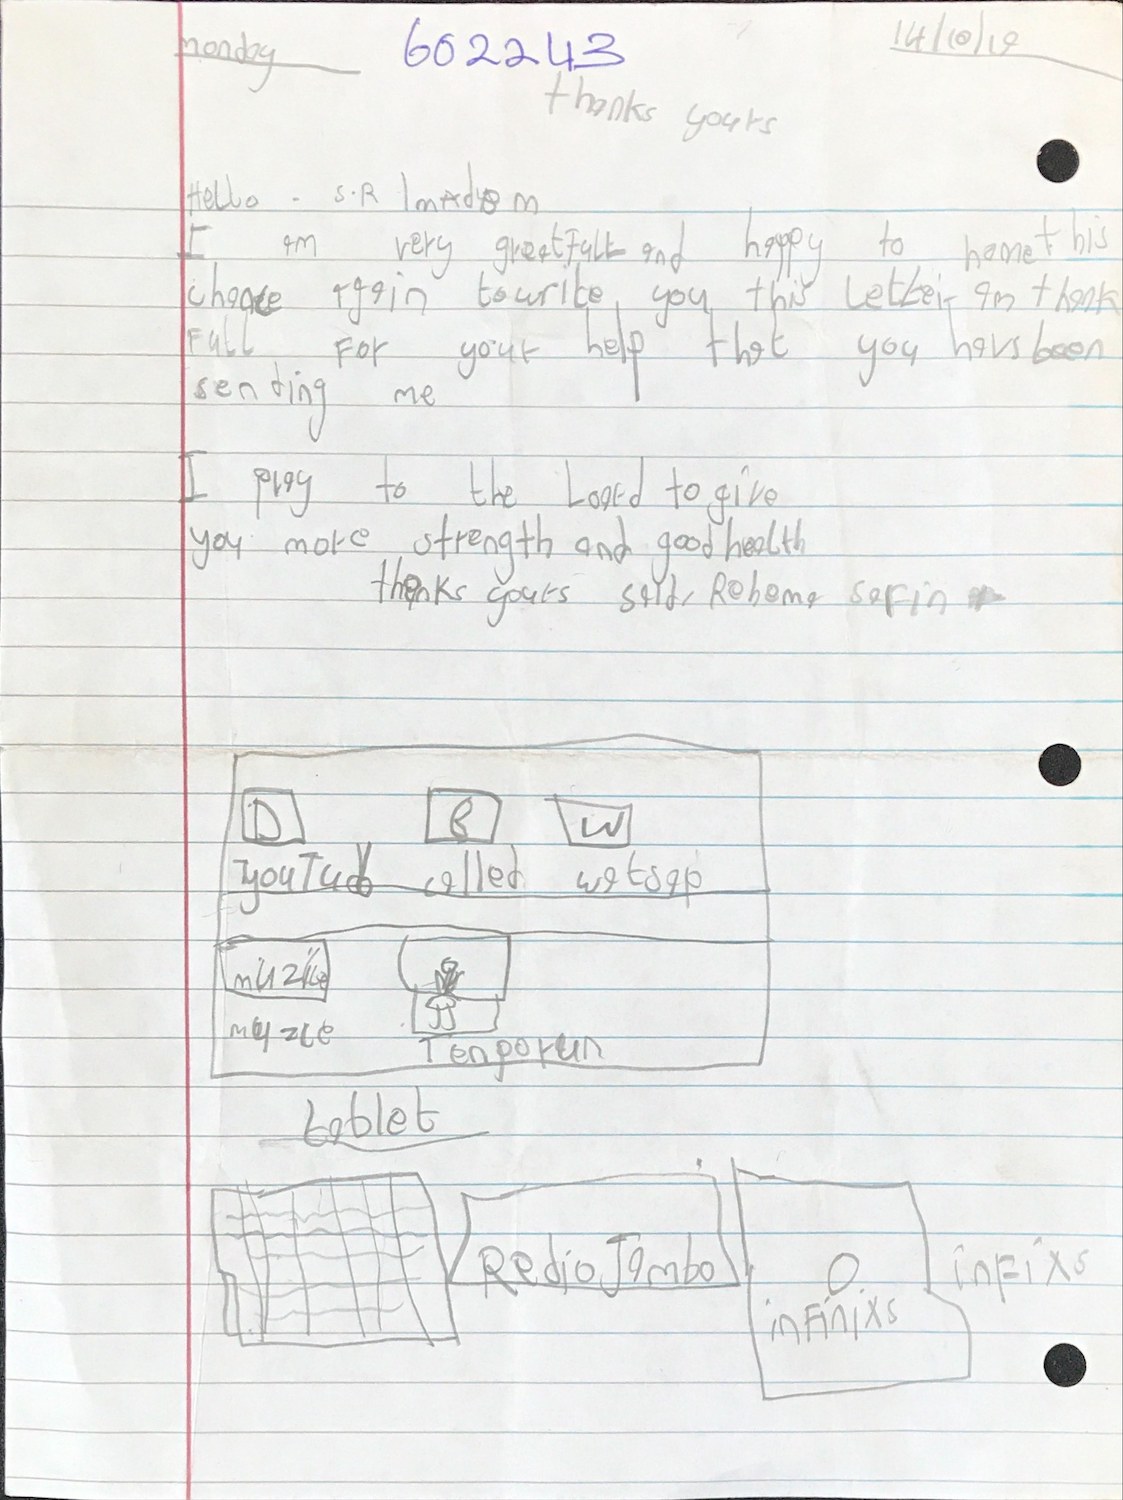 monday 602243 14/10/19
thanks yours
Hello - S.R / madam
I am very greatfull and happy to hame this
chance again to write you this Letter I am thank
Full For your help that you havs been
sending me
I pray to the Loard to give
you more strength and good health
thanks yours said, Rehema sarin
D B W
youTub called watsap
muzice
muzce Tenporun
tablet
Redio Jambo
O
infinixs infixs